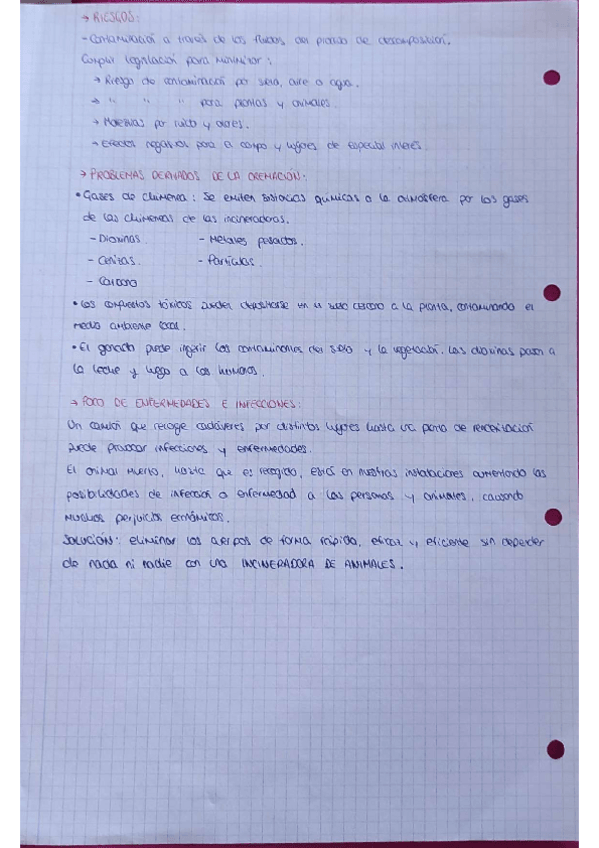 → RIESGOS:
- Contaminación a través de los fluidos del proceso de descomposición.
Cumplir legislación para minimizar:
→ Riesgo de contaminación por suelo, aire o agua.
→ " " " para plantas y animales.
→ Molestias por ruido y olores.
→ Efectos negativos para el campo y lugares de especial interés.
→ PROBLEMAS DERIVADOS DE LA CREMACIÓN:
• Gases de chimenea: Se emiten sustancias químicas a la atmósfera por los gases
de las chimeneas de las incineradoras.
- Dioxinas. - Metales pesados.
- Cenizas. - Partículas.
- Carbono
• Los compuestos tóxicos pueden depositarse en el suelo cercano a la planta, contaminando el
medio ambiente local.
• El ganado puede ingerir los contaminantes del suelo y la vegetación. Las dioxinas pasan a
la leche y luego a los humanos.
→ FOCO DE ENFERMEDADES E INFECCIONES:
Un camión que recoge cadáveres por distintos lugares hasta una planta de
puede provocar infecciones y enfermedades.
El animal muerto, hasta que es recogido, está en nuestras instalaciones aumentando las
posibilidades de infección o enfermedad a las personas y animales, causando
muchos perjuicios económicos.
Solución: eliminar los cuerpos de forma rápida, eficaz y eficiente sin depender
de nada ni nadie con una INCINERADORA DE ANIMALES.